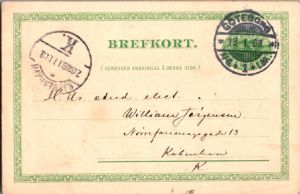 BREFKORT.
(ADRESSEN ANBRINGAS Å DENNA SIDA.)
GÖTEBORG
K.
Hr. stud. elect.
William Jørgensen
Nörrefarimagsgade 13
København
K